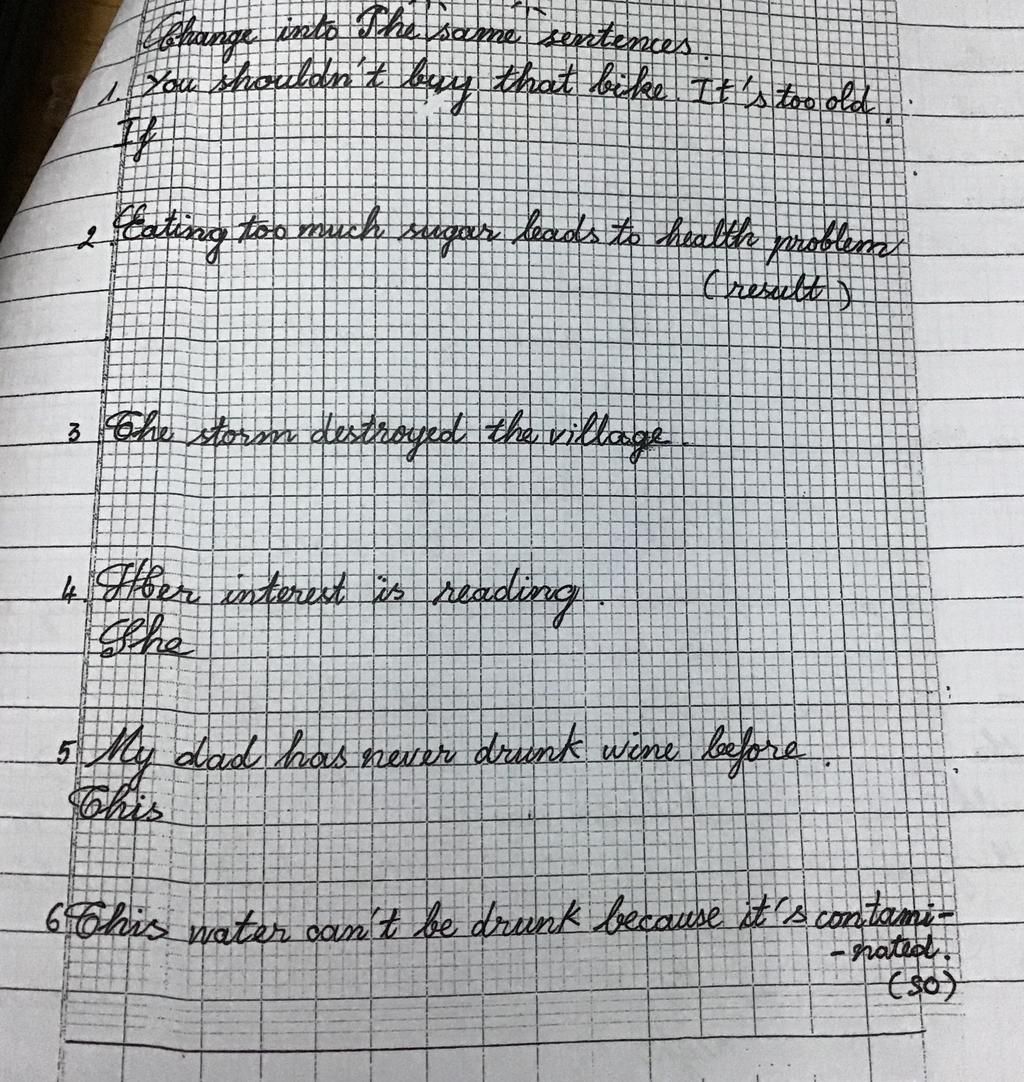 Change into The same sentences.
1. You shouldn't buy that bike. It's too old.
If
2 Eating too much sugar leads to health problem
(result)
3 The storm destroyed the village.
4. Her interest is reading.
She
5 My dad has never drunk wine before.
This
6 This water can't be drunk because it's contami-
-nated.
(so)